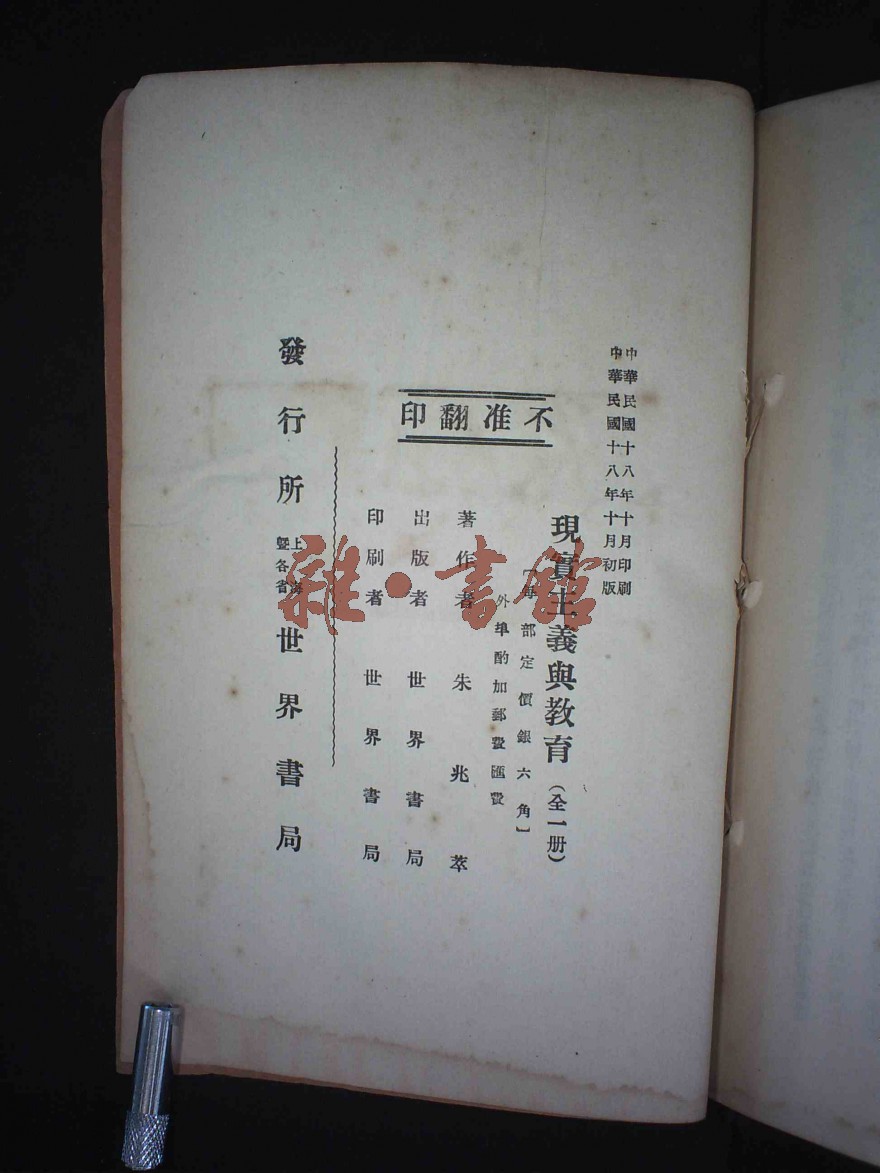 中華民國十八年十月印刷
中華民國十八年十月初版
不准翻印
現實主義與教育(全一冊)
〔每部定價銀六角〕
外埠酌加郵費匯費
著作者 朱兆萃
出版者 世界書局
印刷者 世界書局
發行所 上海暨各省 世界書局
雜·書館